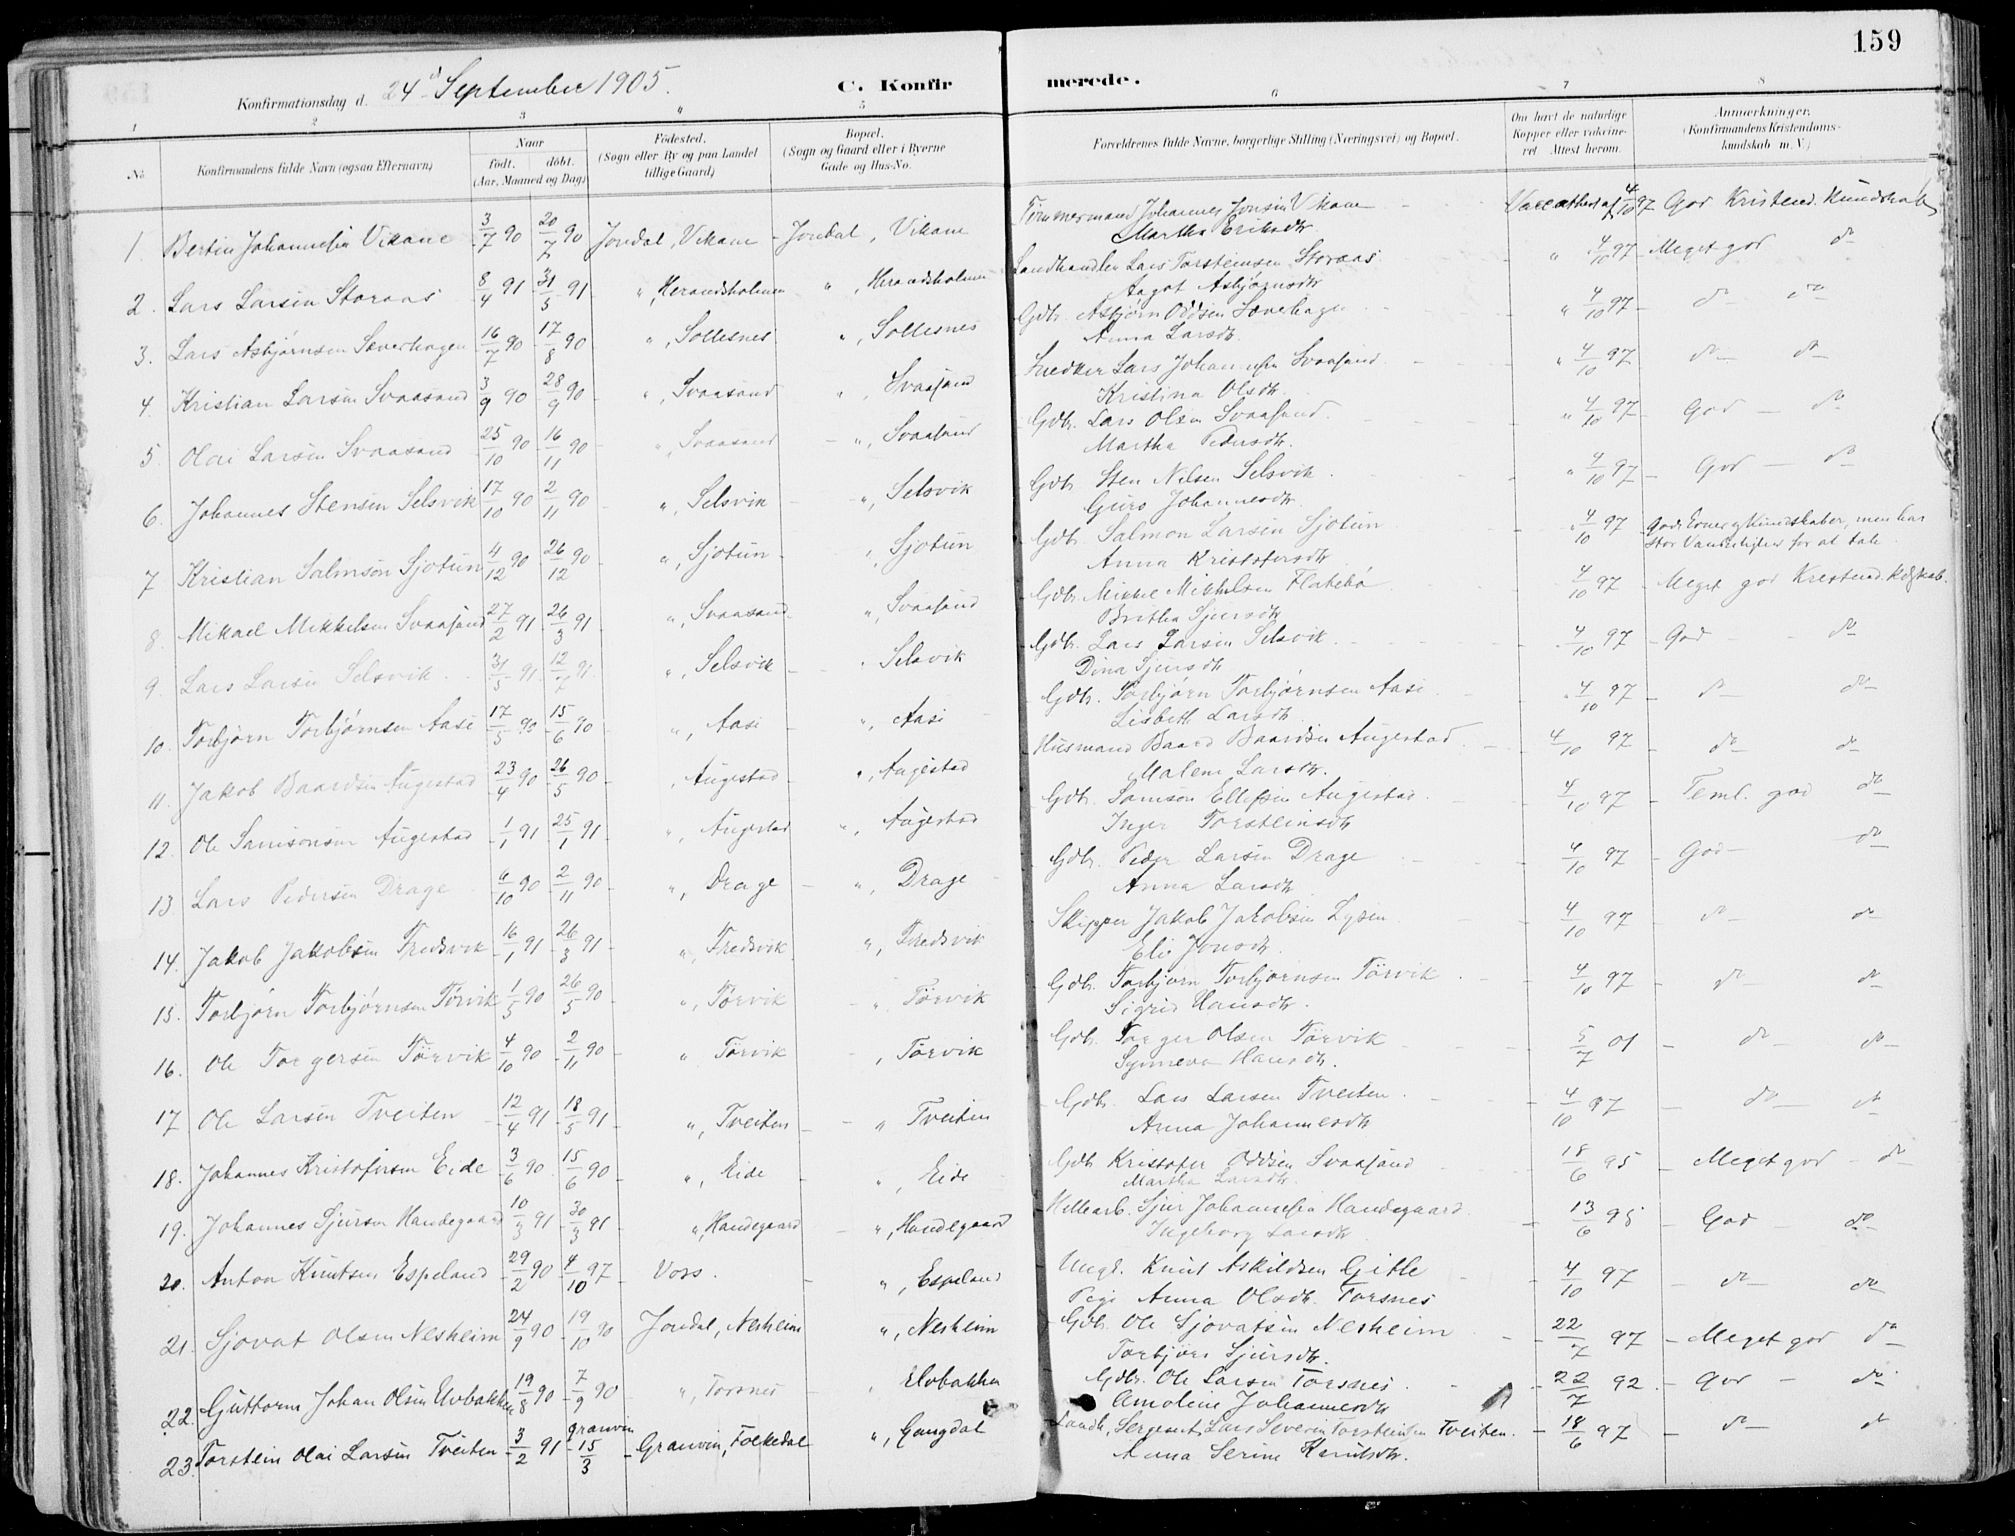 159
Konfirmationsdag d. 24d September 1905.
C. Konfir
merede.
1 2 3 4 5 6 7 8
No
Konfirmandens fulde Navn (ogsaa Efternavn)
Naar
født. døbt.
(Aar, Maaned og Dag)
Fødested.
(Sogn eller By og paa Landet tillige Gaard)
Bopæl.
(Sogn og Gaard eller i Byerne Gade og Hus-No.
Forældrenes fulde Navne, borgerlige Stilling (Næringsvei) og Bopæl.
Om havt de naturlige Kopper eller vaccineret Attest herom.
Anmærkninger.
(Konfirmandens Kristendomskundskab m. V.)
1. Bertin Johannessen Vikane 3/7 90 20/7 90 Jondal, Vikane - Jondal, Vikane Tømmermand Johannes Jonsen Vikane Vacc.attest af 4/10 97 God Kristend. Kundskab
Martha Eriksdtr.
2. Lars Larsen Storaas 8/4 91 31/5 91 ", Herandsholmen ", Herandsholmen Landhandler Lars Torsteinsen Storaas " 4/10 97 - Meget god do
Aagot Asbjørnsdtr
3. Lars Asbjørnsen Sæverhagen 16/7 90 17/8 90 ", Sollesnes ", Sollesnes Gdbr. Asbjørn Oddsen Sæverhagen " 4/10 97 - do do
Anna Larsdtr.
4. Kristian Larsen Svaasand 3/9 90 28/9 90 ", Svaasand ", Svaasand Snedker Lars Johannessen Svaasand " 4/10 97 do do
Kristina Olsdtr
5. Olai Larsen Svaasand 25/10 90 16/11 90 ", Svaasand ", Svaasand Gdbr. Lars Olsen Svaasand " 4/10 97 God - do
Martha Pedersdtr.
6. Johannes Stensen Selsvik 17/10 90 2/11 90 ", Selsvik ", Selsvik Gdbr. Sten Nilsen Selsvik " 4/10 97 - God - do
Guro Johannesdtr
7 Kristian Salmson Sjotun 4/12 90 26/12 90 ", Sjotun ", Sjotun Gdbr. Salmon Larsen Sjotun " 4/10 97 Gode Evner og Kundskaber, men har
Anna Kristofersdtr stor Vanskelighed for at tale.
8. Mikael Mikkelsen Svaasand 27/2 91 26/3 91 ", Svaasand ", Svaasand Gdbr. Mikkel Mikkelsen Flatebø 4/10 97 - Meget god Kristend. Kdskab.
Britha Sjursdtr
9. Lars Larsen Selsvik 31/5 91 12/7 91 ", Selsvik " Selsvik Gdbr. Lars Larsen Selsvik 4/10 97 - God - do
Dina Sjursdtr
10. Torbjørn Torbjørnsen Aase 17/5 90 15/6 90 ", Aase ", Aase Gdbr. Torbjørn Torbjørnsen Aase " 4/10 97 - do - do
Lisbeth Larsdtr.
11. Jakob Baardsen Augestad 23/4 90 26/5 90 ", Augestad ", Augestad Husmand Baard Baardsen Augestad 4/10 97 - do do
Malene Larsdtr.
12. Ole Samsonsen Augestad 1/1 91 25/1 91 ", Augestad ", Augestad Gdbr. Samson Ellefsen Augestad 4/10 97 - Teml. god do
Inger Torsteinsdtr
13. Lars Pedersen Drage 6/10 90 2/11 90 ", Drage ", Drage Gdbr. Peder Larsen Drage 4/10 97 - God - do
Anna Larsdtr
14. Jakob Jakobsen Tredsvik 16/1 91 26/3 91 ", Tredsvik ", Tredsvik Skipper Jakob Jakobsen Lysen 4/10 97 - do - do
Eli Jonsdtr
15. Torbjørn Torbjørnsen Tørvik 1/5 90 26/5 90 ", Tørvik " Tørvik Gdbr. Torbjørn Torbjørnsen Tørvik 4/10 97 - do - do
Sigrid Hansdtr.
16. Ole Torgersen Tørvik 4/10 90 2/11 90 " Tørvik , Tørvik Gdbr. Torger Olsen Tørvik 5/7 01 - do do
Synneva Hansdtr.
17 Ole Larsen Tveiten 12/4 91 18/5 91 ", Tveiten " Tveiten Gdbr. Lars Larsen Tveiten 4/10 97 - do do
Anna Johannesdtr
18. Johannes Kristofersen Eide 3/6 90 15/6 90 ", Eide ", Eide Gdbr Kristofer Oddsen Svaasand 18/6 95 - Meget god - do
Martha Larsdtr.
19. Johannes Sjursen Handegaard 10/3 91 30/3 91 ", Handegaard ", Handegaard Hellearb. Sjur Johannessen Handegaard 13/6 95 - God - do
Ingeborg Larsdtr
20. Anton Knutsen Espeland 29/2 90 4/10 97 Voss. ", Espeland Ungk. Knut Askildsen Gitle 4/10 97 - do do
Pige Anna Olsdtr. Torsnes
21. Sjovat Olsen Nesheim 24/9 90 19/10 90 Jondal, Nesheim ", Nesheim Gdbr. Ole Sjovatsen Nesheim 22/7 97 - Meget god do
Torbjør Sjursdtr.
22. Guttorm Johan Olsen Elvbakken 19/8 90 7/9 90 ", Torsnes , Elvbakken Gdbr. Ole Larsen Torsnes 22/7 92 - God - do
Amoline Johannesdtr
23. Torstein Olai Larsen Tveiten 3/2 91 Granvin 15/3 Granvin, Folkedal ", Gangdal Landh., Sergeant, Lars Severin Torsteinsen Tveiten. 18/6 97 - do - do
Anna Serine Knudsdtr.